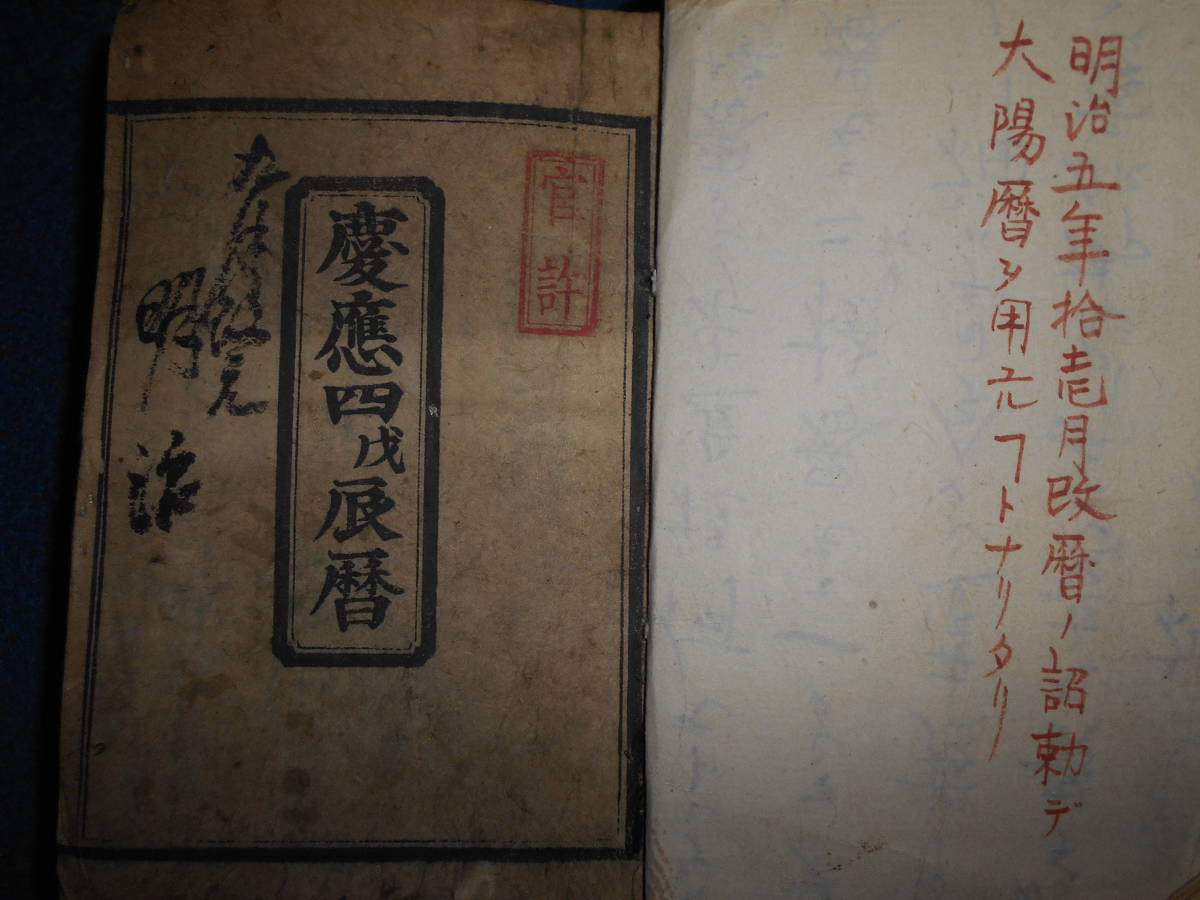 明治五年拾壱月改暦ノ詔勅デ
大陽暦ヲ用ユルヿトナリタリ
官許
慶應四戊辰暦
明治